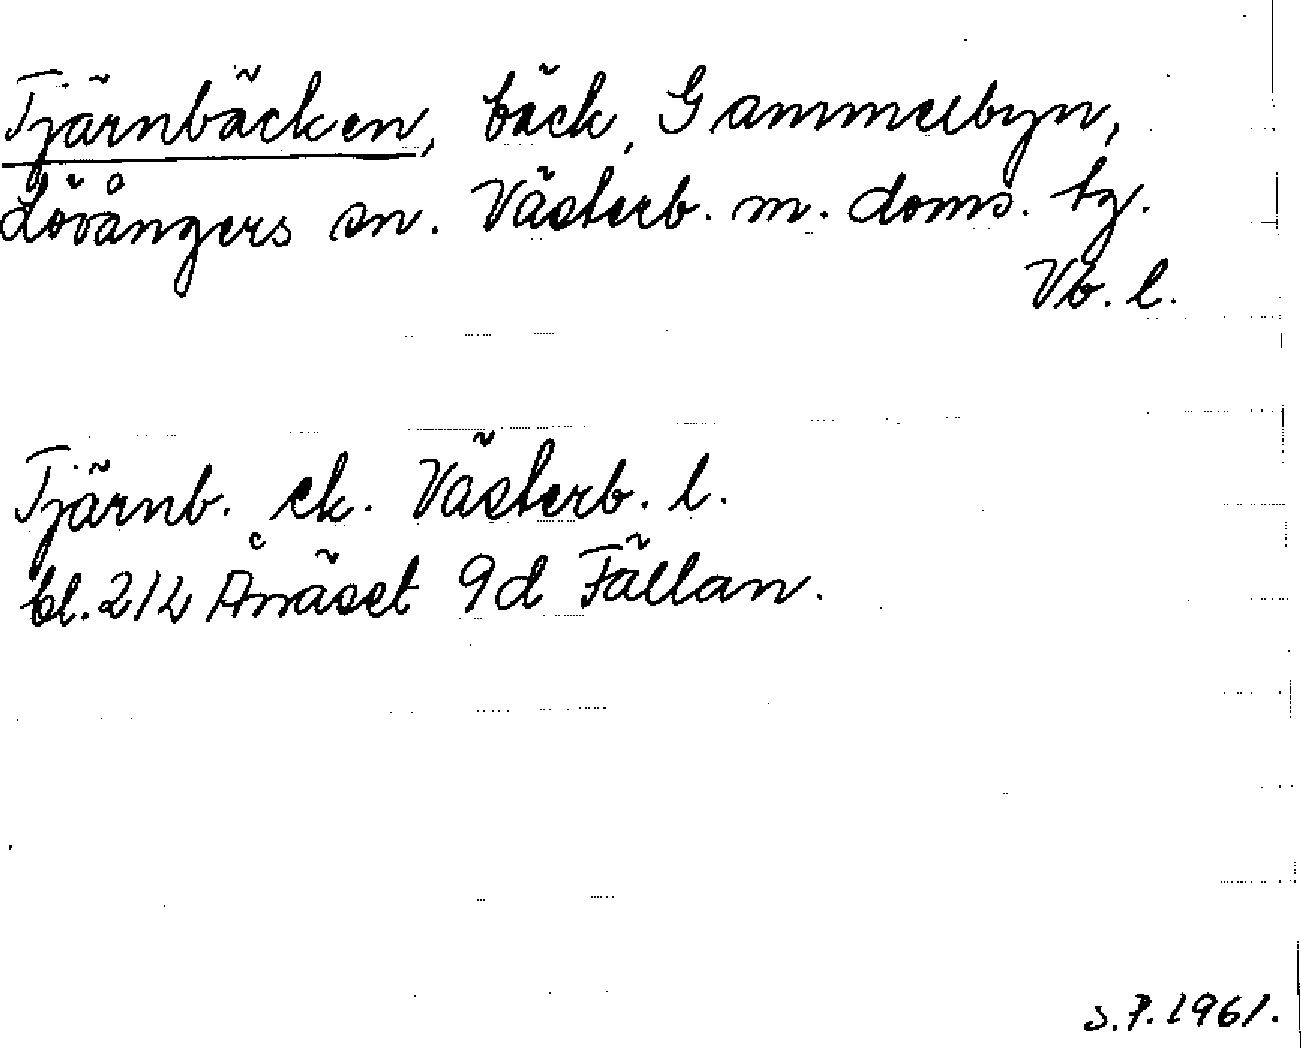 Tjärnbäcken, bäck, Gammelbyn,
Lövångers sn. Västerb. m. doms. tg.
Vb. l.
Tjärnb. ek. Västerb. l.
bl. 212 Ånäset 9d Fällan.
S.P. 1961.